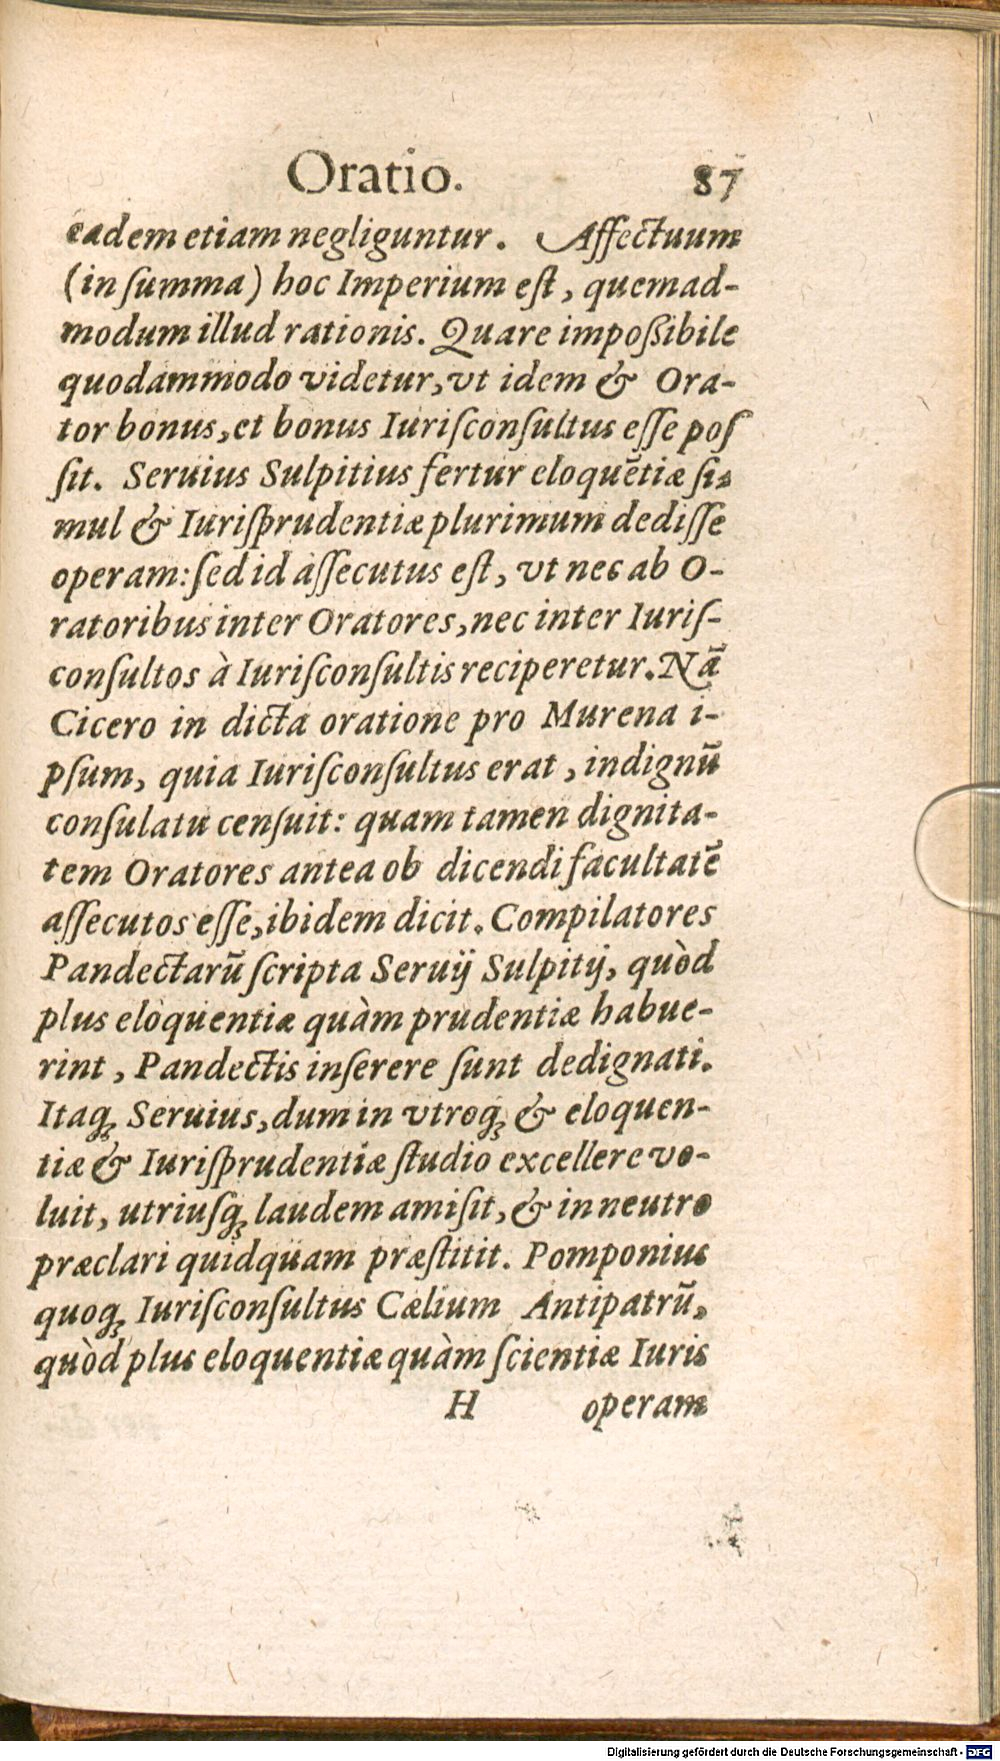 Oratio. 87
eadem etiam negliguntur. Affectuum
(in ſumma) hoc Imperium eſt, quemad-
modum illud rationis. Quare impoßibile
quodammodo videtur, vt idem & Ora-
tor bonus, et bonus Iuriſconſultus eſſe poſ
ſit. Seruius Sulpitius fertur eloquẽtiæ ſi-
mul & Iuriſprudentiæ plurimum dediſſe
operam: ſed id aſſecutus eſt, vt nec ab O-
ratoribus inter Oratores, nec inter Iuriſ-
conſultos à Iuriſconſultis reciperetur. Nã
Cicero in dicta oratione pro Murena i-
pſum, quia Iuriſconſultus erat, indignũ
conſulatu cenſuit: quam tamen dignita-
tem Oratores antea ob dicendi facultatẽ
aſſecutos eſſe, ibidem dicit. Compilatores
Pandectarũ ſcripta Seruij Sulpitij, quòd
plus eloquentiæ quàm prudentiæ habue-
rint, Pandectis inſerere ſunt dedignati.
Itaq; Seruius, dum in vtroq; & eloquen-
tiæ & Iuriſprudentiæ ſtudio excellere vo-
luit, utriuſq; laudem amiſit, & in neutro
præclari quidquam præſtitit. Pomponius
quoq; Iuriſconſultus Cælium Antipatrũ,
quòd plus eloquentiæ quàm ſcientiæ Iuris
H operam
Digitalisierung gefördert durch die Deutsche Forschungsgemeinschaft - DFG